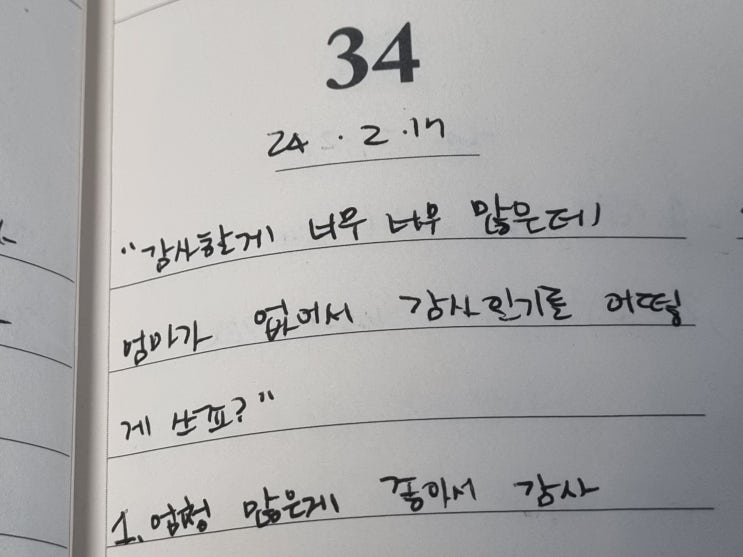 34
24 . 2 . 17
"감사할게 너무 너무 많은데
엄마가 없어서 감사일기를 어떻
게 쓰죠?"
1. 엄청 많은게 좋아서 감사